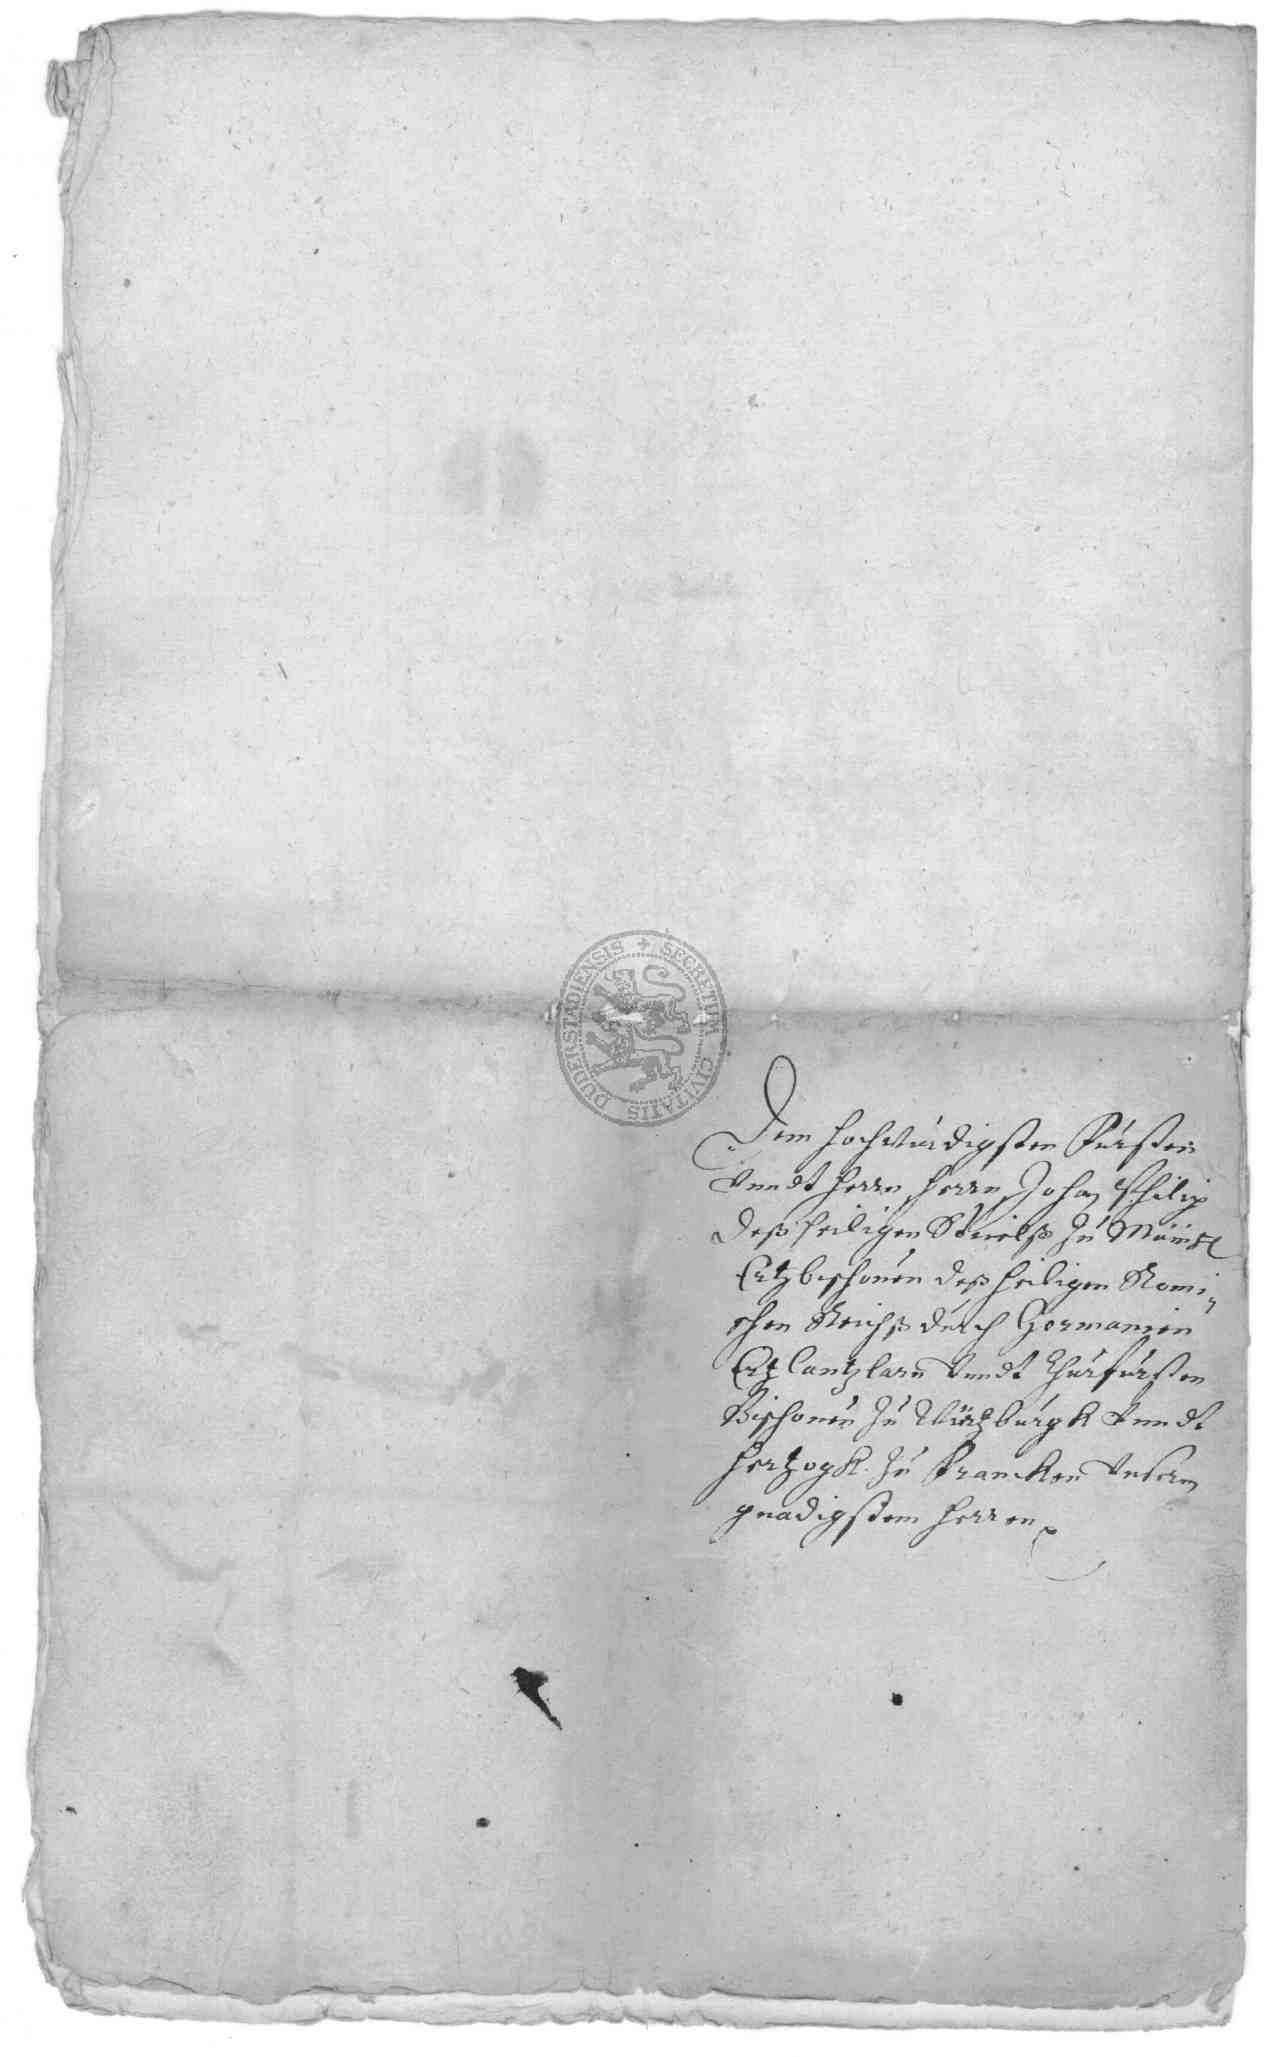 SECRETUM CIVITATIS DUDERSTADIENSIS
Dem hochwurdigsten Fürsten
vnndt herrn herrn Johan Philip
deß heiligen Stuelß zu Maintz
Ertzbischouen deß heiligen Romi-
schen Reichß durch Germanien
Ertz Cantzlarn vnndt Churfursten
Bischouen zu Würtzburgk vnndt
hertzogk zu Francken vnserm
gnadigstem herren